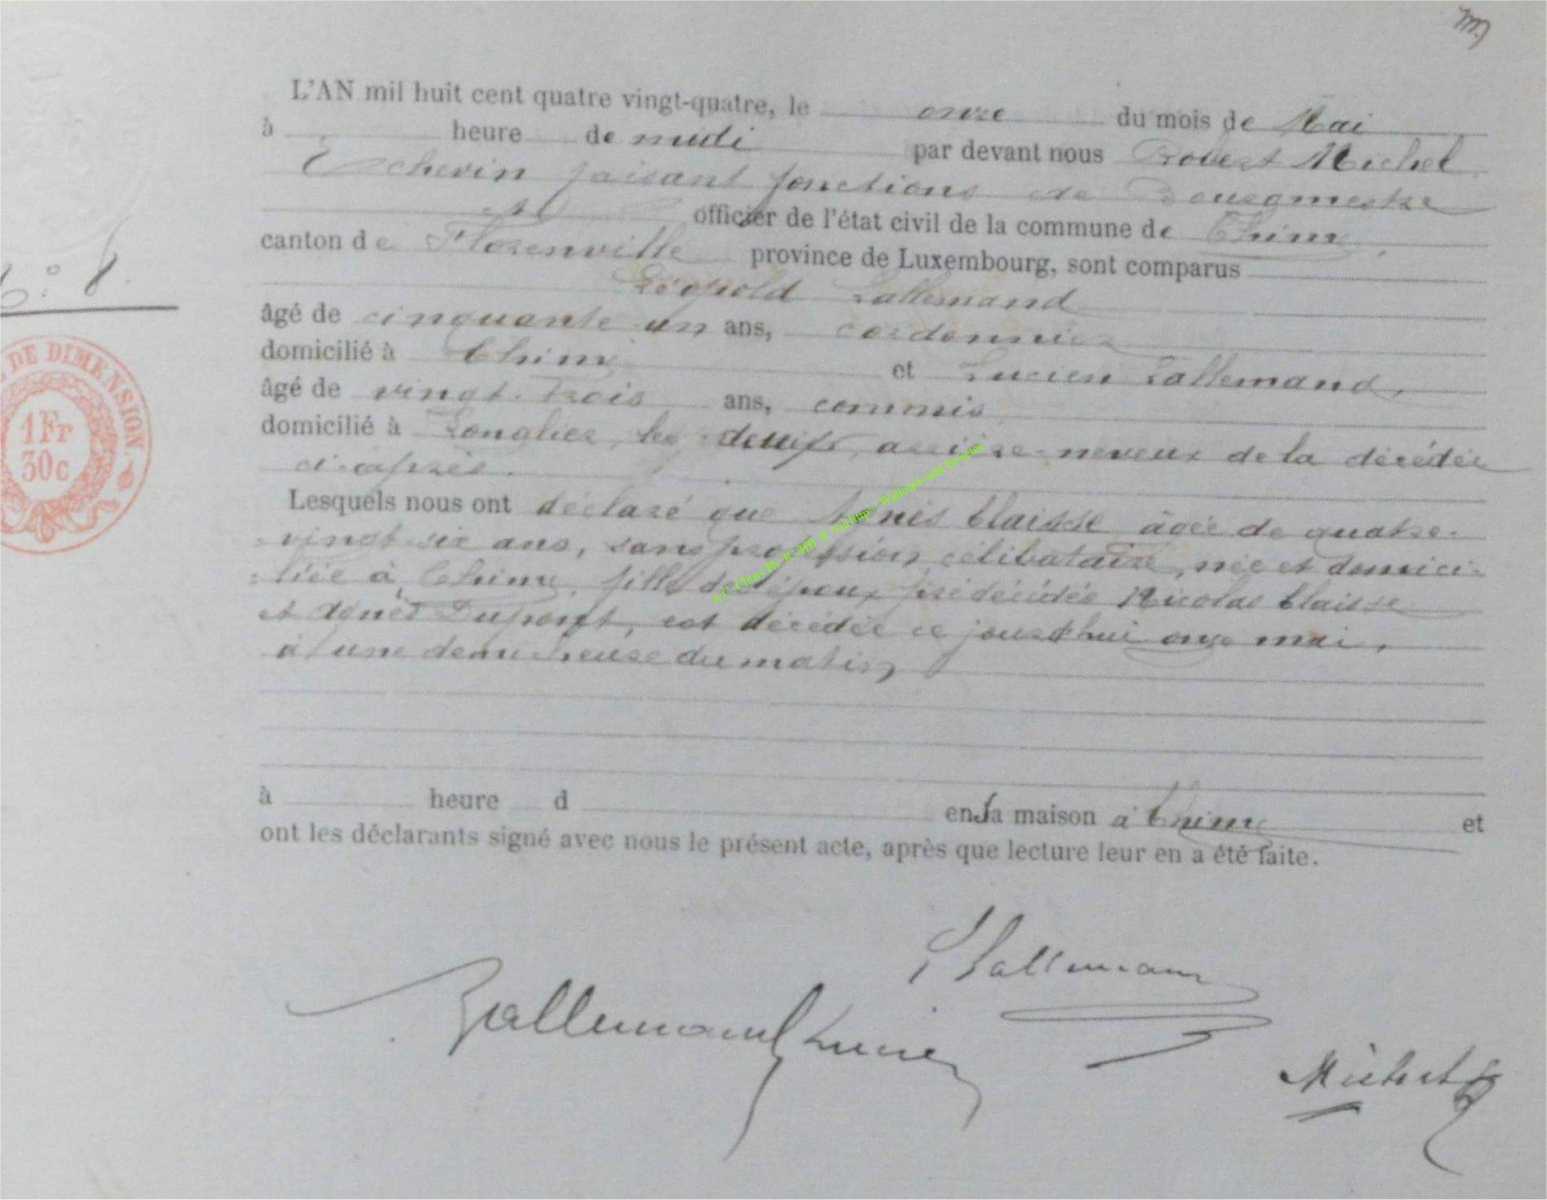 L'AN mil huit cent quatre vingt-quatre, le onze du mois de Mai
à heure de midi par devant nous Robert Michel
Echevin faisant fonctions de Bourgmestre
officier de l'état civil de la commune de Chiny,
canton de Florenville province de Luxembourg, sont comparus
Léopold Lallemand
âgé de cinquante un ans, cordonnier
domicilié à Chiny et Lucien Lallemand,
âgé de vingt-trois ans, commis
domicilié à Longlier, les deux arrière-neveux de la décédée
ci-après.
Lesquels nous ont déclaré que Agnès Claisse âgée de quatre-
vingt-six ans, sans profession, célibataire, née et domici-
liée à Chiny, fille des époux prédécédés Nicolas Claisse
et Agnès Dupont, est décédée ce jourd'hui onze mai,
à une demi heure du matin
à heure d en sa maison à Chiny et
ont les déclarants signé avec nous le présent acte, après que lecture leur en a été faite.
N° 8.
DE DIMENSION
1 Fr
30c
L Lallemand
Lallemand Lucien
Michel